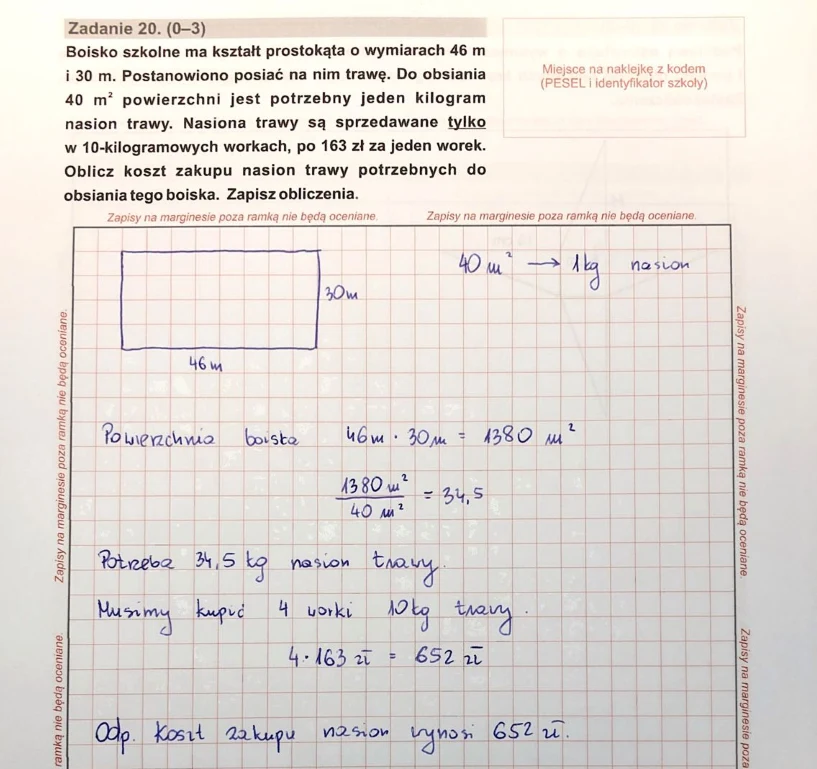 Zadanie 20. (0–3)
Boisko szkolne ma kształt prostokąta o wymiarach 46 m
i 30 m. Postanowiono posiać na nim trawę. Do obsiania
40 m² powierzchni jest potrzebny jeden kilogram
nasion trawy. Nasiona trawy są sprzedawane tylko
w 10-kilogramowych workach, po 163 zł za jeden worek.
Oblicz koszt zakupu nasion trawy potrzebnych do
obsiania tego boiska. Zapisz obliczenia.
Miejsce na naklejkę z kodem
(PESEL i identyfikator szkoły)
Zapisy na marginesie poza ramką nie będą oceniane.
Zapisy na marginesie poza ramką nie będą oceniane.
40 m² → 1kg nasion
30m
46m
Powierzchnia boiska 46m · 30m = 1380 m²
1380 m²
40 m²
= 34,5
Potrzeba 34,5 kg nasion trawy.
Musimy kupić 4 worki 10kg trawy.
4 · 163 zł = 652 zł
Odp. Koszt zakupu nasion wynosi 652 zł.
Zapisy na marginesie poza ramką nie będą oceniane.
ramką nie będą oceniane.
Zapisy na marginesie poza ramką nie będą oceniane
Zapisy na marginesie poza